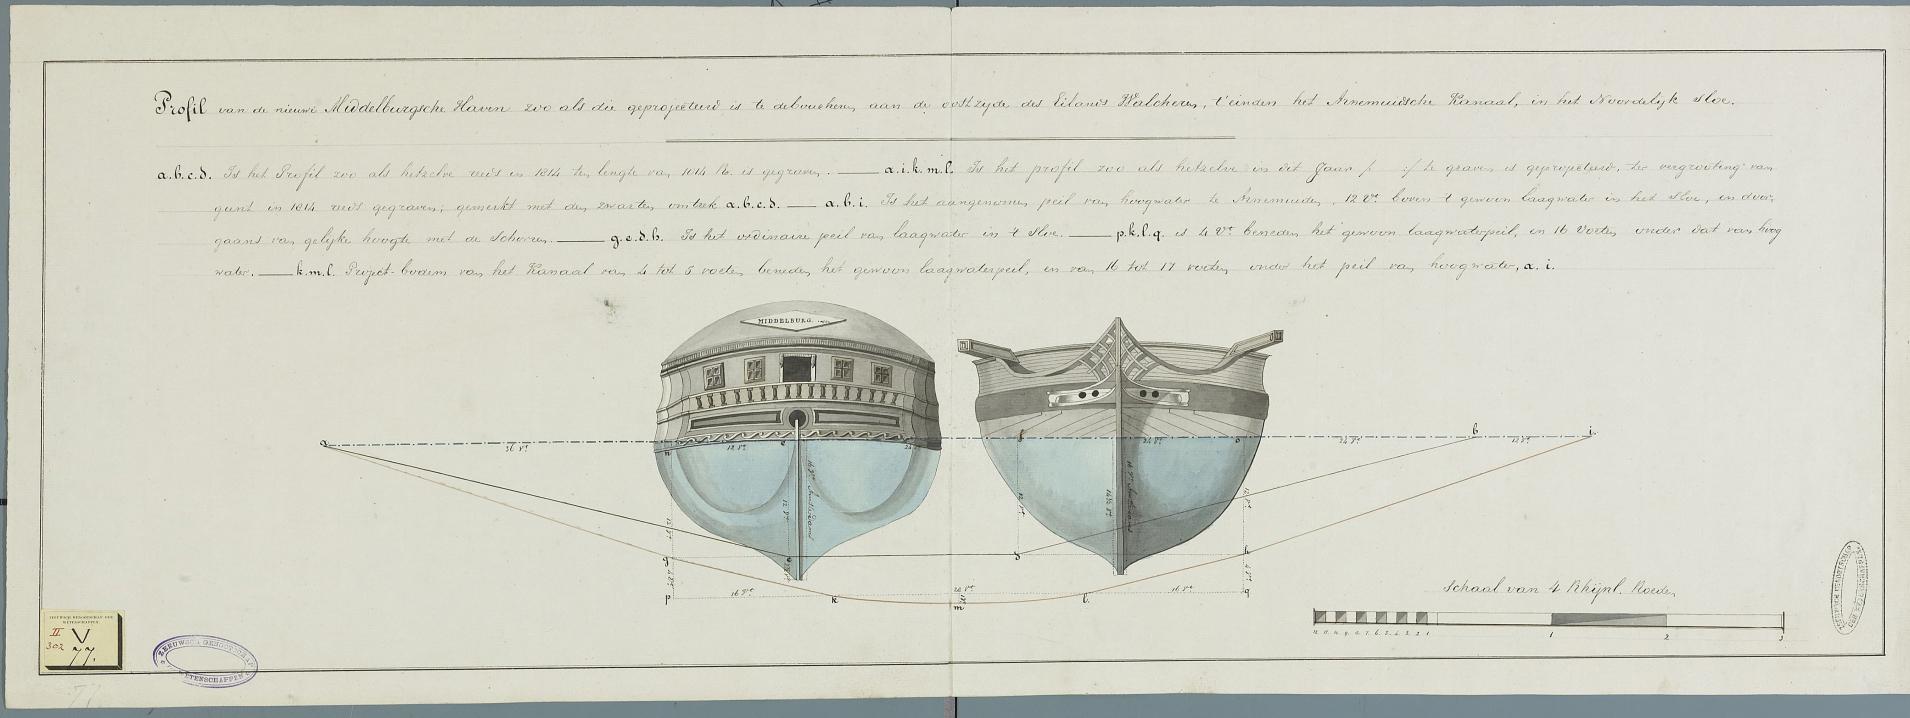 Profil van de nieuwe Middelburgsche Haven zoo als die geprojecteerd is te deboucheren aan de oostzyde des Eilands Walcheren, t'einden het Arnemuidsche Kanaal, in het Noordelyk Sloe.
a.b.c.d. Is het Profil zoo als hetzelve reeds in 1814 ter lengte van 1014 R. is gegraven. — a.i.k.m.l. Is het profil zoo als hetzelve in dit Jaar /: :/ te graven is geprojecteerd, ter vergrooting van
gunt in 1814 reeds gegraven, gemerkt met den zwarten omtrek a.b.c.d. — a.b.i. Is het aangenomen peil van hoogwater te Arnemuiden, 12 Vt. boven 't gewoon laagwater in het Sloe, en door,
gaans van gelyke hoogte met de Schorren. — g.c.d.h. Is het ordinaire peil van laagwater in 't Sloe. — p.k.l.q. is 4 Vt. beneden het gewoon laagwaterpeil, en 16 Voeten onder dat van hoog
water. — k.m.l. Project-bodem van het Kanaal van 4 tot 5 voeten beneden het gewoon laagwaterpeil, en van 16 tot 17 voeten onder het peil van hoogwater, a. i.
MIDDELBURG.
a
36 Vt.
n
12 Vt.
e
f
24 Vt.
o
24 Vt.
b
12 Vt.
i.
12 Vt.
12 Vt.
12 Vt.
g
c
d
h
4 Vt.
4 Vt.
p
16 Vt.
k
m
l
16 Vt.
q
Schaal van 4 Rhijnl. Roeden
1 2 3
ZEEUWSCH GENOOTSCHAP DER
WETENSCHAPPEN.
II V
302 77.
ZEEUWSCH GENOOTSCHAP
DER WETENSCHAPPEN
ZEEUWSCH GENOOTSCHAP
DER WETENSCHAPPEN